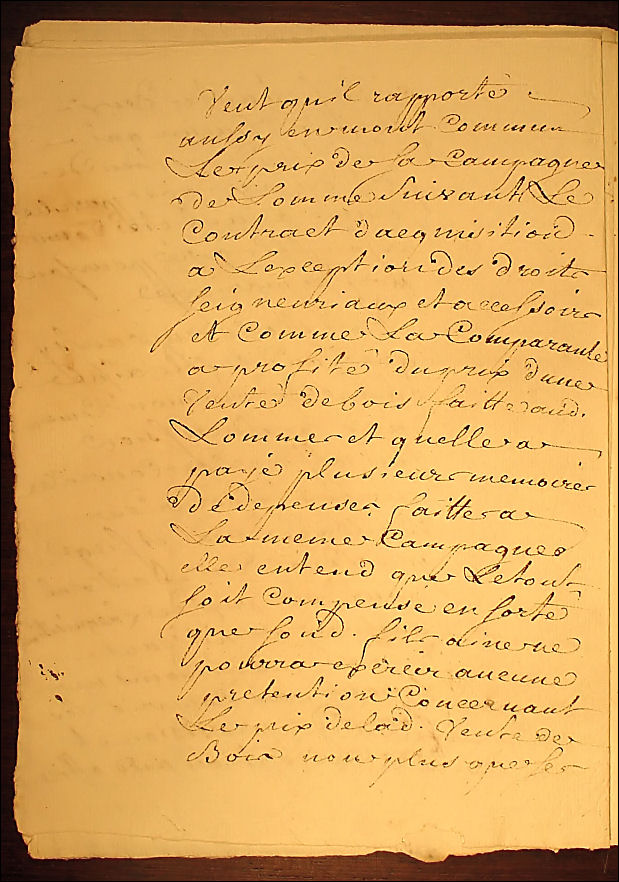 Veut qu'il rapporte
aussy en mont commun
Le prix de sa Campagne
de Lomme suivant Le
Contract dacquisition
a Lexception des droits
seigneuriaux et accessoire
et comme La Comparante
a profité du prix dune
Vente de bois faitte aud.
Lomme et quelle a
payé plusieurs memoires
de depenses faitte a
La meme Campagne
elle entend que Letout
soit compensé en sorte
que sond. fils ainé ne
pourra exercer aucune
pretention Concernant
Le prix delad. Vente de
Bois non plus que ses